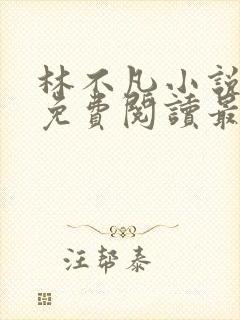 林不凡小說
免費閱讀最
汪幇泰